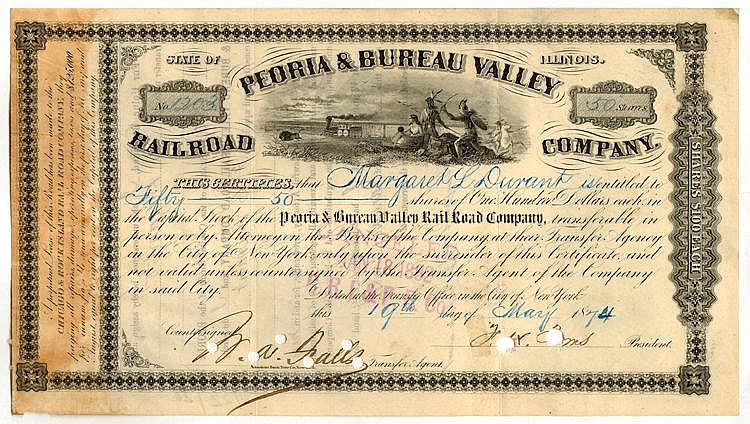 STATE OF
ILLINOIS.
PEORIA & BUREAU VALLEY
No. 1203
50 Shares
RAILROAD
COMPANY.
THIS CERTIFIES, that Margaret L Durant is entitled to
Fifty 50 shares of One Hundred Dollars each, in
the Capital Stock of the Peoria & Bureau Valley Rail Road Company, transferable in
person or by Attorney on the Books of the Company at their Transfer Agency
in the City of New York and upon the surrender of this Certificate, and
not valid unless countersigned by the Transfer Agent of the Company
in said City.
Dated at the Transfer Office in the City of New York
this 19th day of May 1874
Countersigned
President.
Transfer Agent.
SHARES $100 EACH
A perpetual Lease of this Road has been made to the
CHICAGO & ROCK ISLAND RAIL ROAD COMPANY,